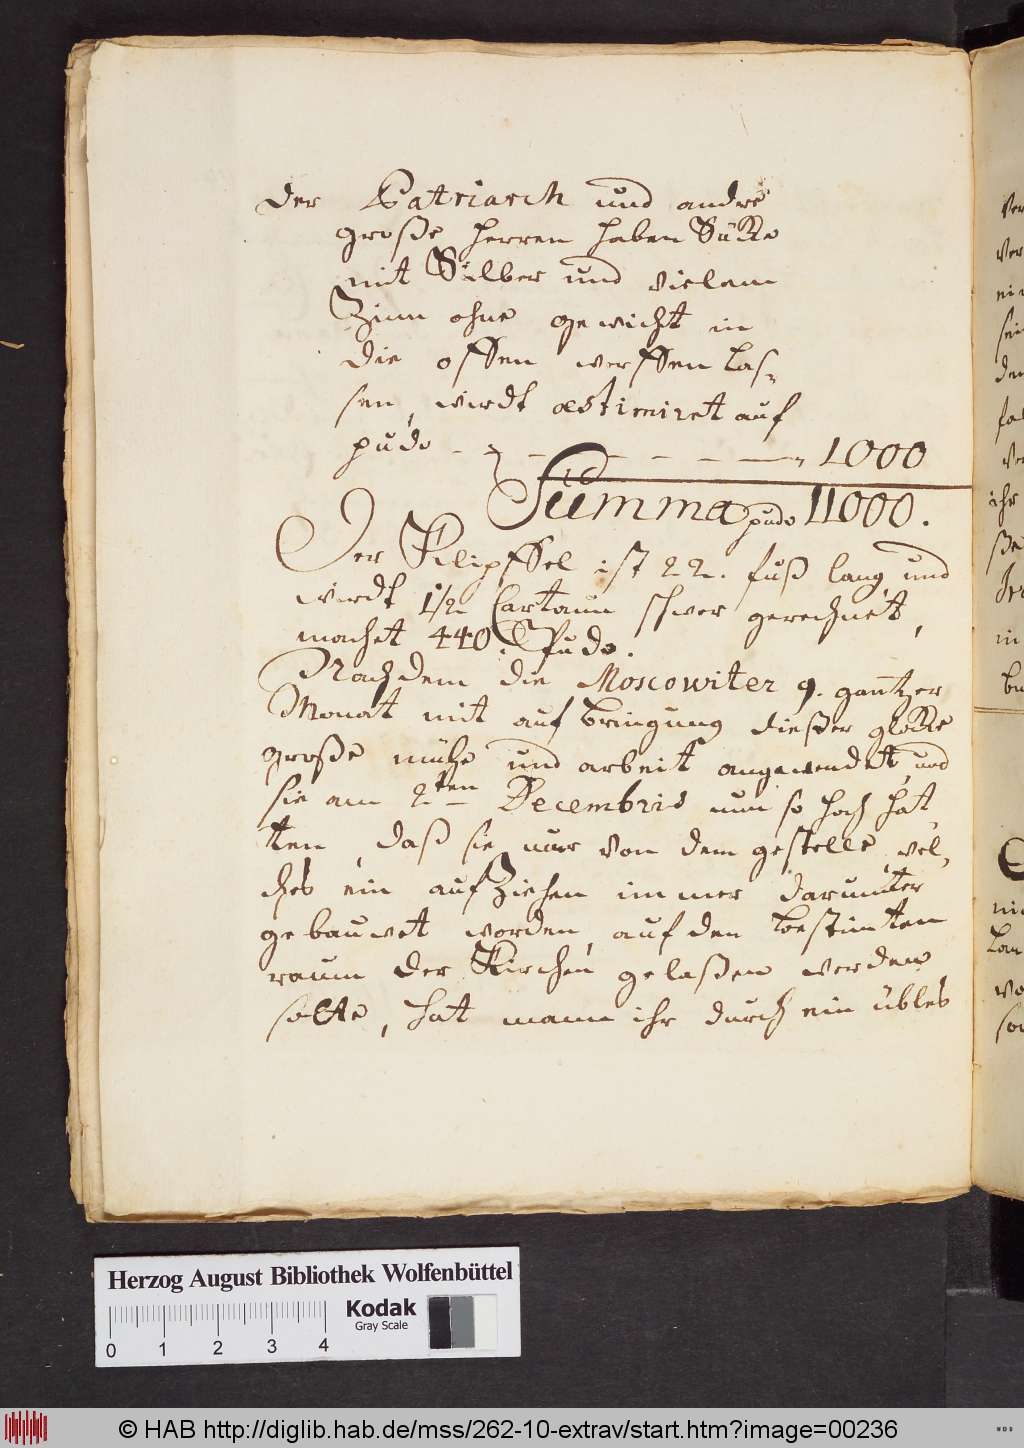 Der Patriarch und andre
große herren haben Säkke
mit Silber und vielem
Zinn ohne gewicht in
die offen werffen las-
sen, wirdt æstimiret auf
pudo - - - - - - - 1000
Summa pudo 11000.
Der Klipffel ist 22. fuß lang und
wirdt 1 1/2 Cartaun schwer gerechnet,
machet 440. Pudo.
Nachdem die Moscowiter 9. gantzer
Monat mit auf bringung dießer glokke
große mühe und arbeit angewendet, und
sie am 2ten Decembris nun so hoch hat-
ten, daß sie nur von dem gestelle, wel-
ches ein aufZiehen immer darunter
gebauwet worden, auf den bestimten
raum der Kirchen gelaßen werden
solte, hat mann ihr durch ein übles
Herzog August Bibliothek Wolfenbüttel
Kodak
Gray Scale
0 1 2 3 4
© HAB http://diglib.hab.de/mss/262-10-extrav/start.htm?image=00236